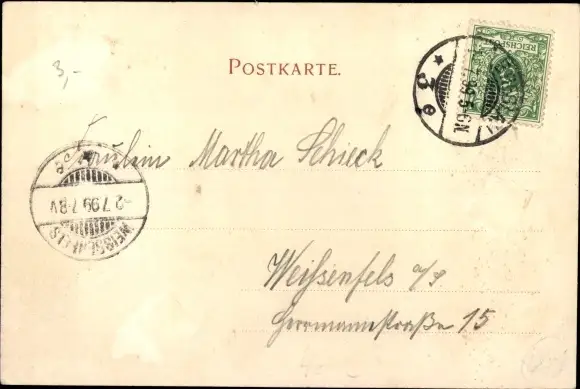 3,-
POSTKARTE.
REICHSPOST
Fräulein Martha Schieck
WEISSENFELS
-2.7.99.7-8V
Weißenfels a/S.
Herrmannstraße 15